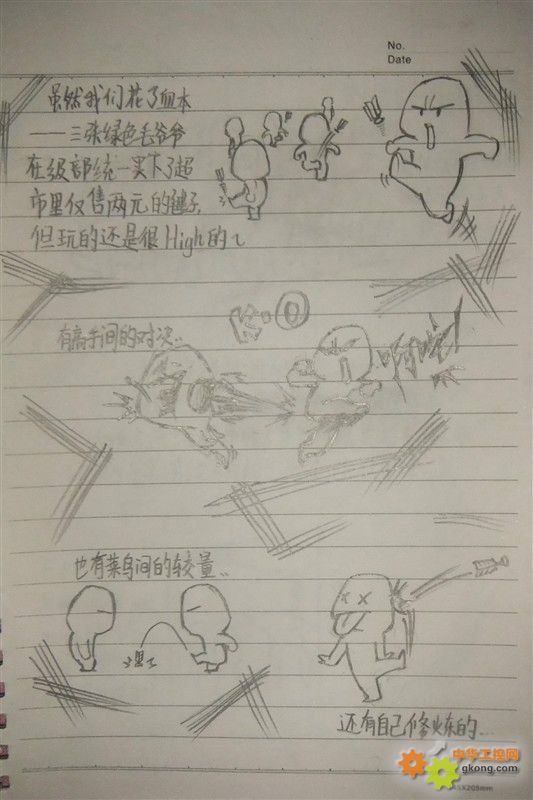 No.
Date
虽然我们花了血本
——三张绿色毛爷爷
在级部统一买下了超
市里仅售两元的毽子,
但玩的还是很High的~
有高手间的对决..
也有菜鸟间的较量..
还有自己修炼的...
中华工控网
gkong.com